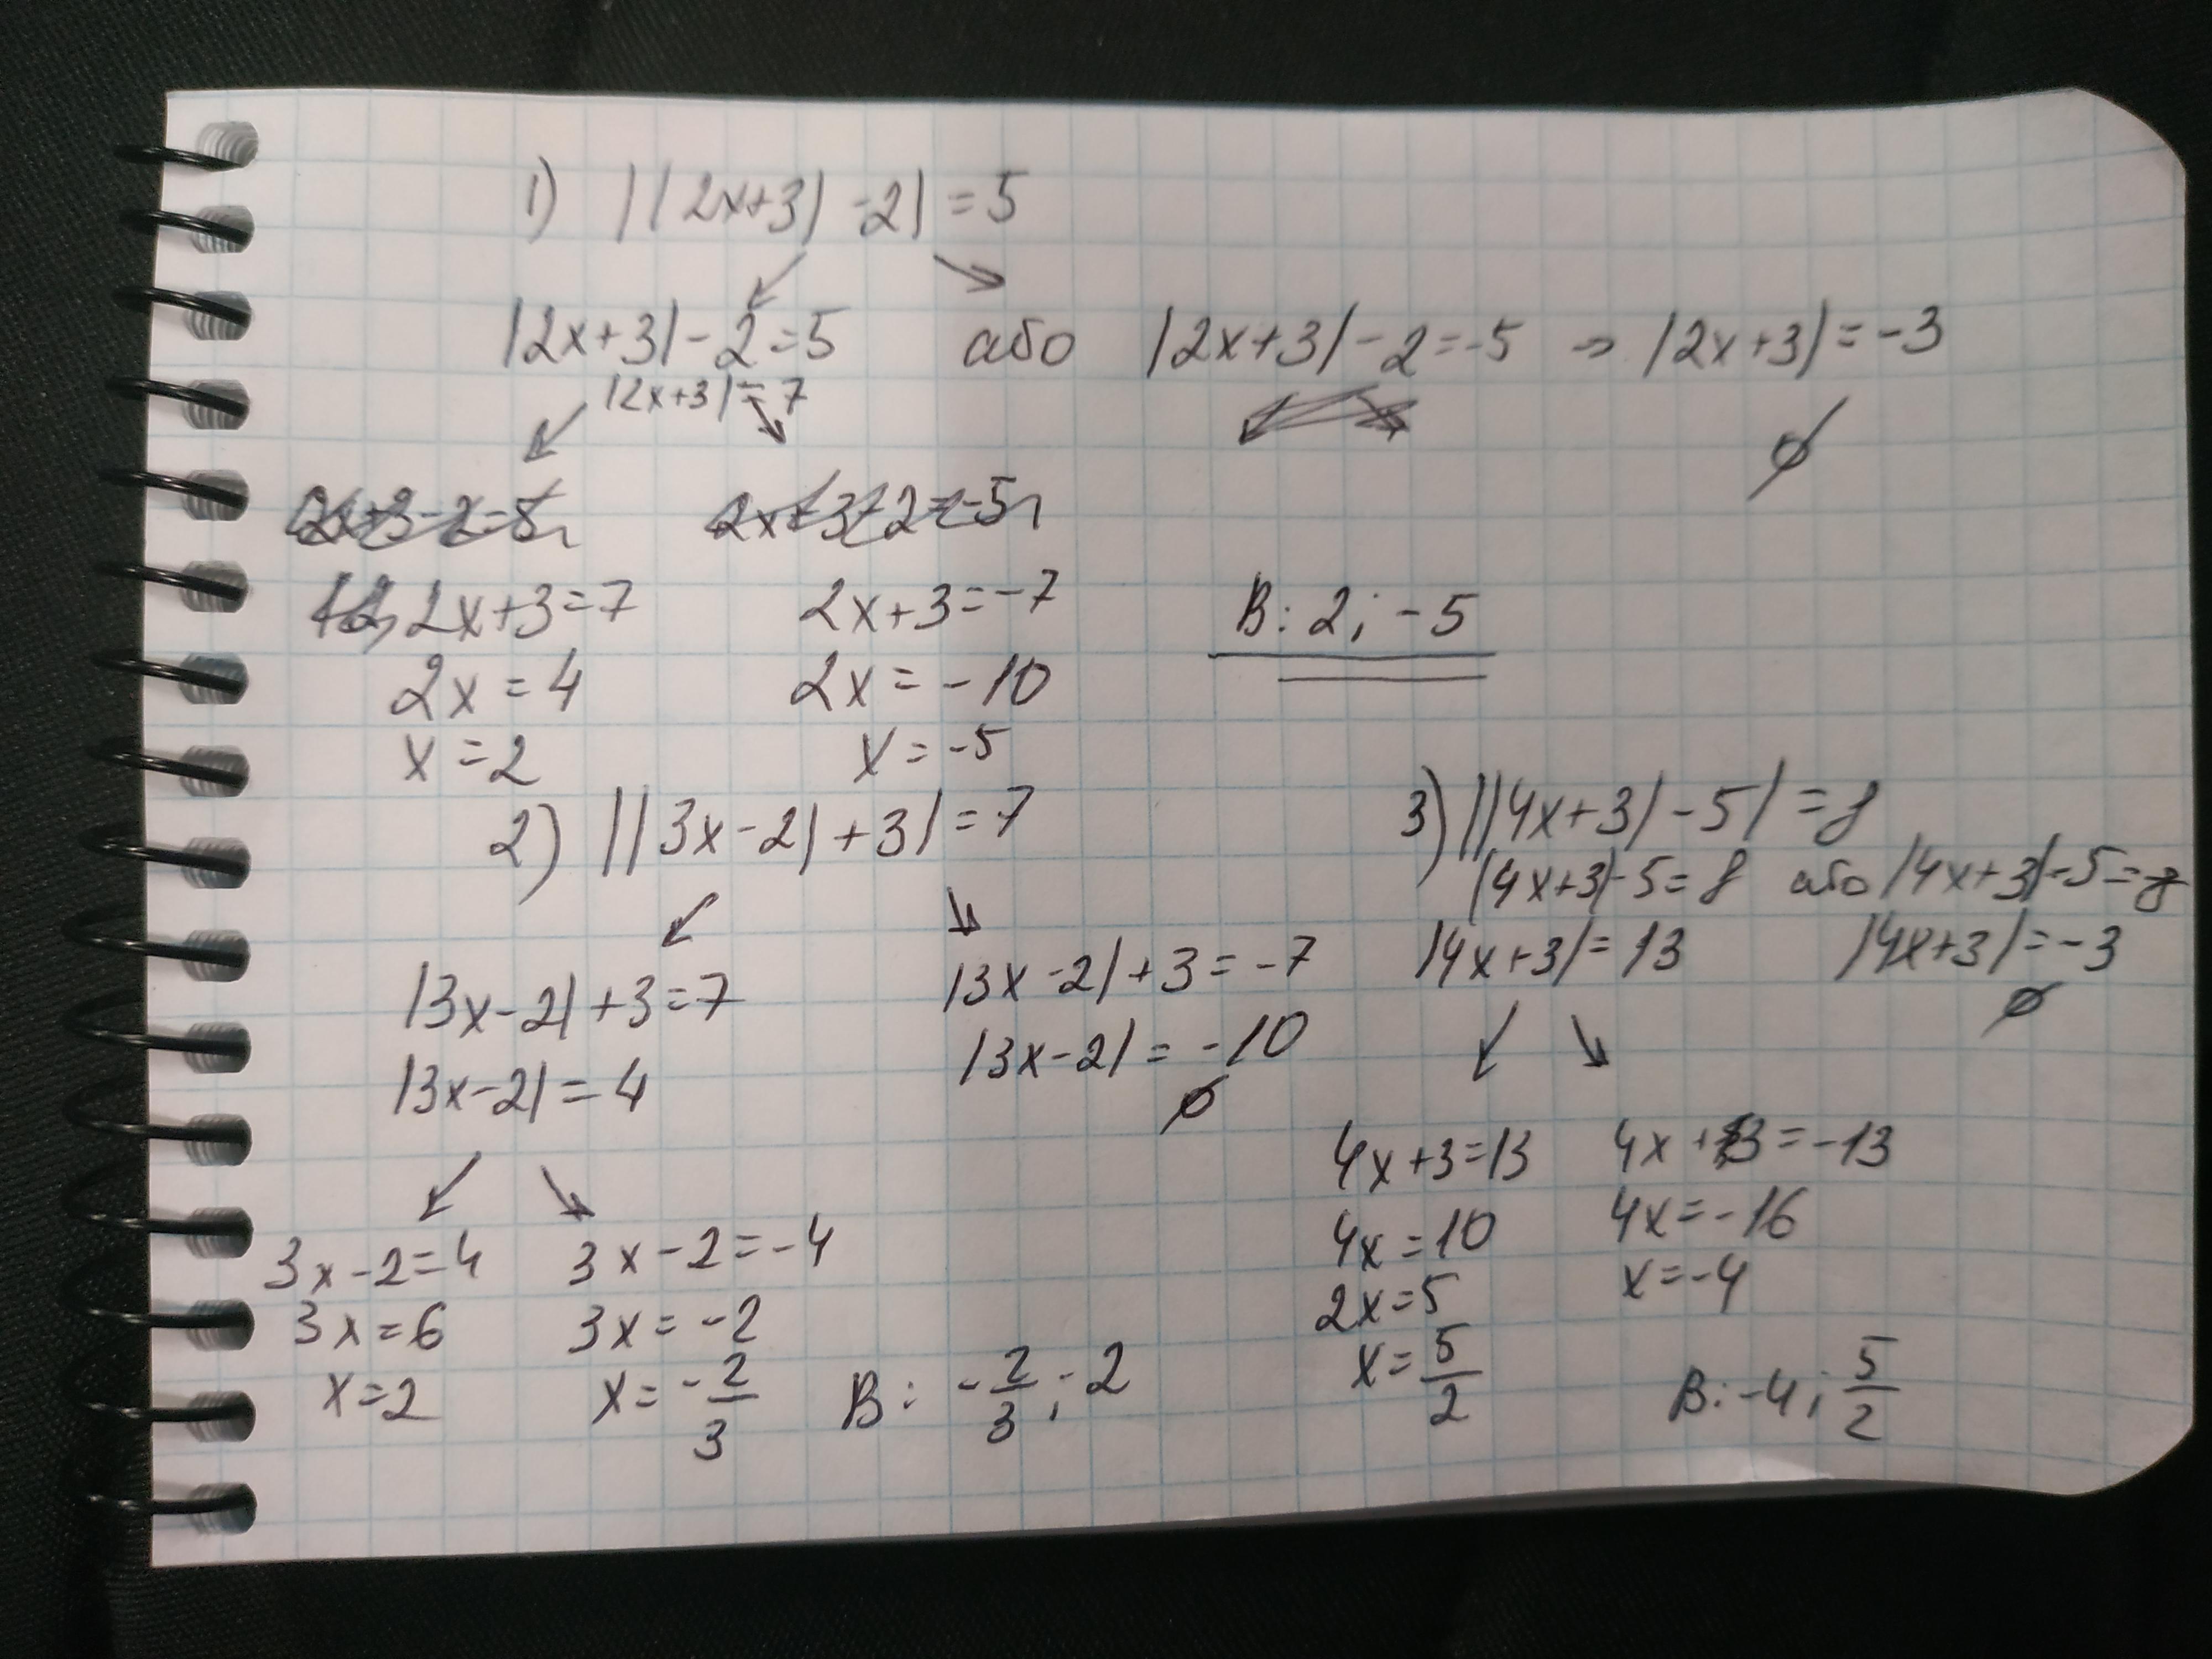 1) ||2x+3|-2|=5
|2x+3|-2=5 або |2x+3|-2=-5 => |2x+3|=-3
|2x+3|=7
∅
2x+3-2=5 2x+3-2=-5
2x+3=7 2x+3=-7 В: 2; -5
2x=4 2x=-10
x=2 x=-5
2) ||3x-2|+3|=7
|3x-2|+3=7 |3x-2|+3=-7
|3x-2|=4 |3x-2|=-10
∅
3x-2=4 3x-2=-4
3x=6 3x=-2
x=2 x=-2/3 В: -2/3; 2
3) ||4x+3|-5|=8
|4x+3|-5=8 або |4x+3|-5=-8
|4x+3|=13 |4x+3|=-3
∅
4x+3=13 4x+3=-13
4x=10 4x=-16
2x=5 x=-4
x=5/2 В: -4; 5/2